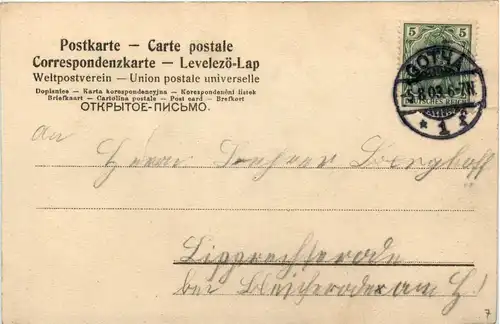 Postkarte — Carte postale
Correspondenzkarte — Levelező-Lap
Weltpostverein — Union postale universelle
Dopisnice — Karta korespondencyjna — Korespondenční listek
Briefkaart — Cartolina postale — Post card — Brefkort
ОТКРЫТОЕ-ПИСЬМО.
5 5
GOTHA
8.03. 6-7N.
DEUTSCHES REICH
* 1 f
An
Herrn Lehrer Berghoff
Lipprechterode
bei Bleicherode am H!
7